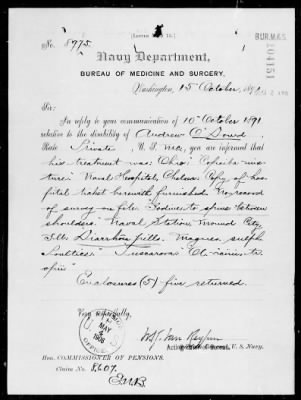 No. 8975.
BUR.M.&S.
104151
Navy Department,
BUREAU OF MEDICINE AND SURGERY,
Washington, 15 October, 1891
Sir:
In reply to your communication of 10 October 1891
relative to the disability of Andrew O'Dowd
Rate Private, U. S. M.C., you are informed that
his treatment was: Ohio:
Naval Hospital, Chelsea: Copy of hos-
pital ticket herewith furnished. No record
of survey on file. Iodine to spine between
shoulders. Naval Station, Mound City
Ills. Diarrhoea pills. Magnes. sulph.
"Tuscarora"
Enclosures (5) five returned.
Very respectfully,
MAY
4
1908
U. S. Navy.
Hon. COMMISSIONER OF PENSIONS.
Claim No. 8607.